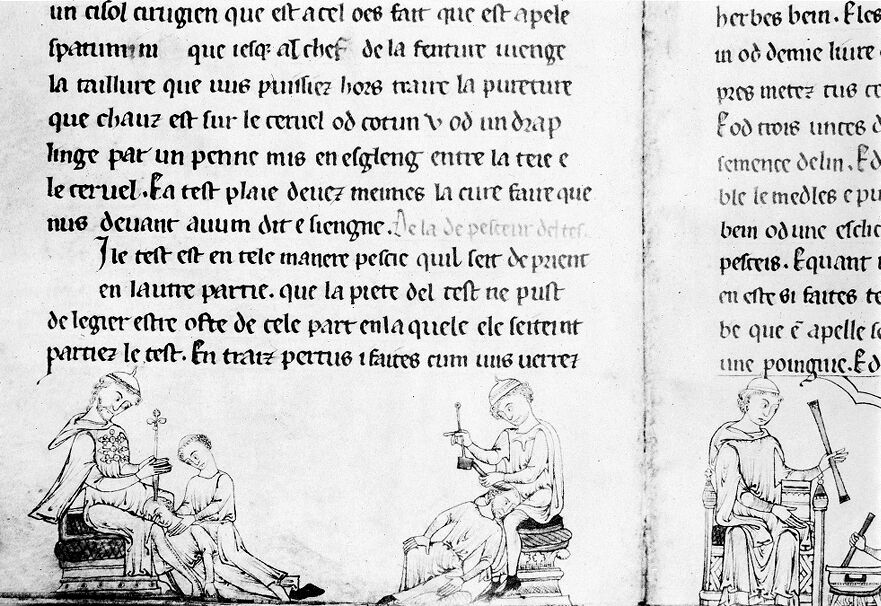 un cisol cirugien que est a cel oes fait que est apele
spatumini que iesqz al chef de la fenture uienge
la taillure que uus puissiez hors traire la pureture
que chauz est sur le ceruel od cotun v od un drap
linge par un penne mis en esgleng entre la teie e
le ceruel. Ea test plaie deuez meimes la cure faire que
nus deuant auum dit e siengne. De la depesceur del tes.
Ile test est en tele manere pescie quil seit deprient
en lautre partie. que la piece del test ne pust
de legier estre oste de cele part en la quele ele seiteint
partiez le test. En traiz pertus i faites cum uus uerrez
herbes bein. Eles
in od demie liure
pres metez tus ce
Eod trois unces d
semence de lin. Ed
ble le medles e pu
bein od une esclic
pesceis. Equant i
en este si faites te
be que ē apelle se
une poingnie. Ed